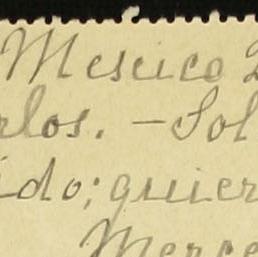 Mexico 2
rlos. - Sol
ido; quier
Merce